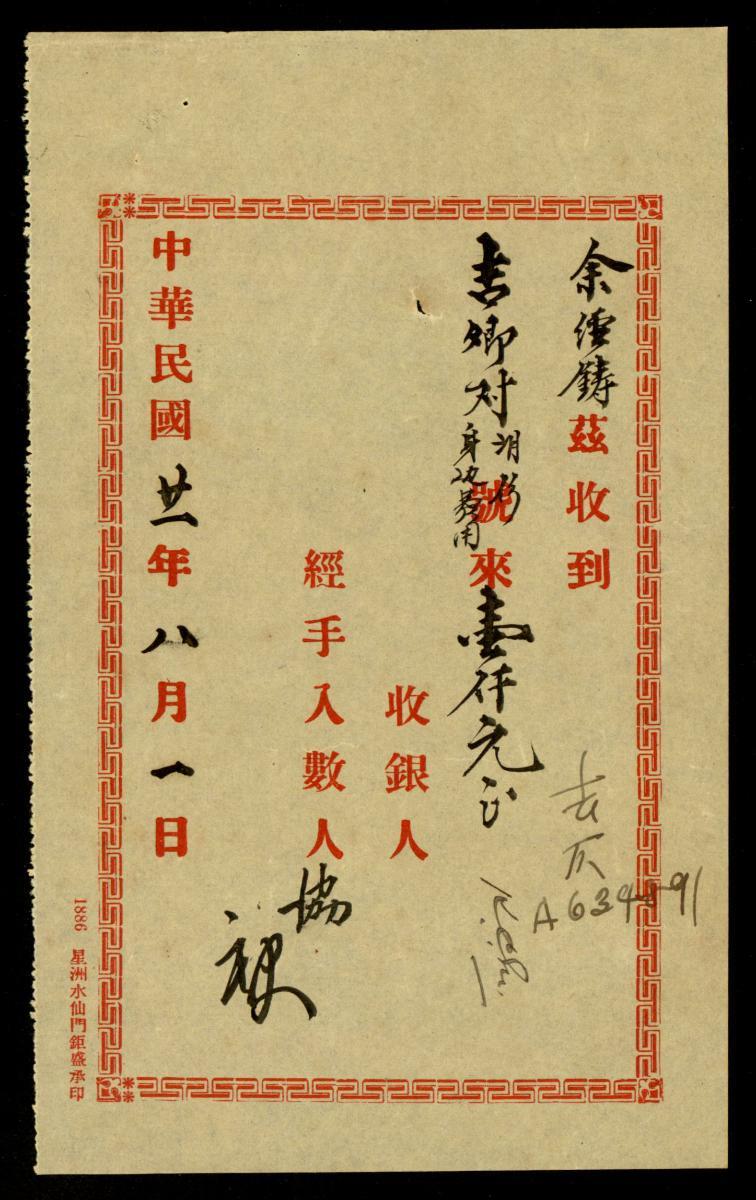 余經鑄茲收到
吉卿对
身
用
號來壹仟元正
收銀人
經手入數人協
中華民國廿一年八月一日
去仄
A634891
1886 星洲水仙門鉅盛承印